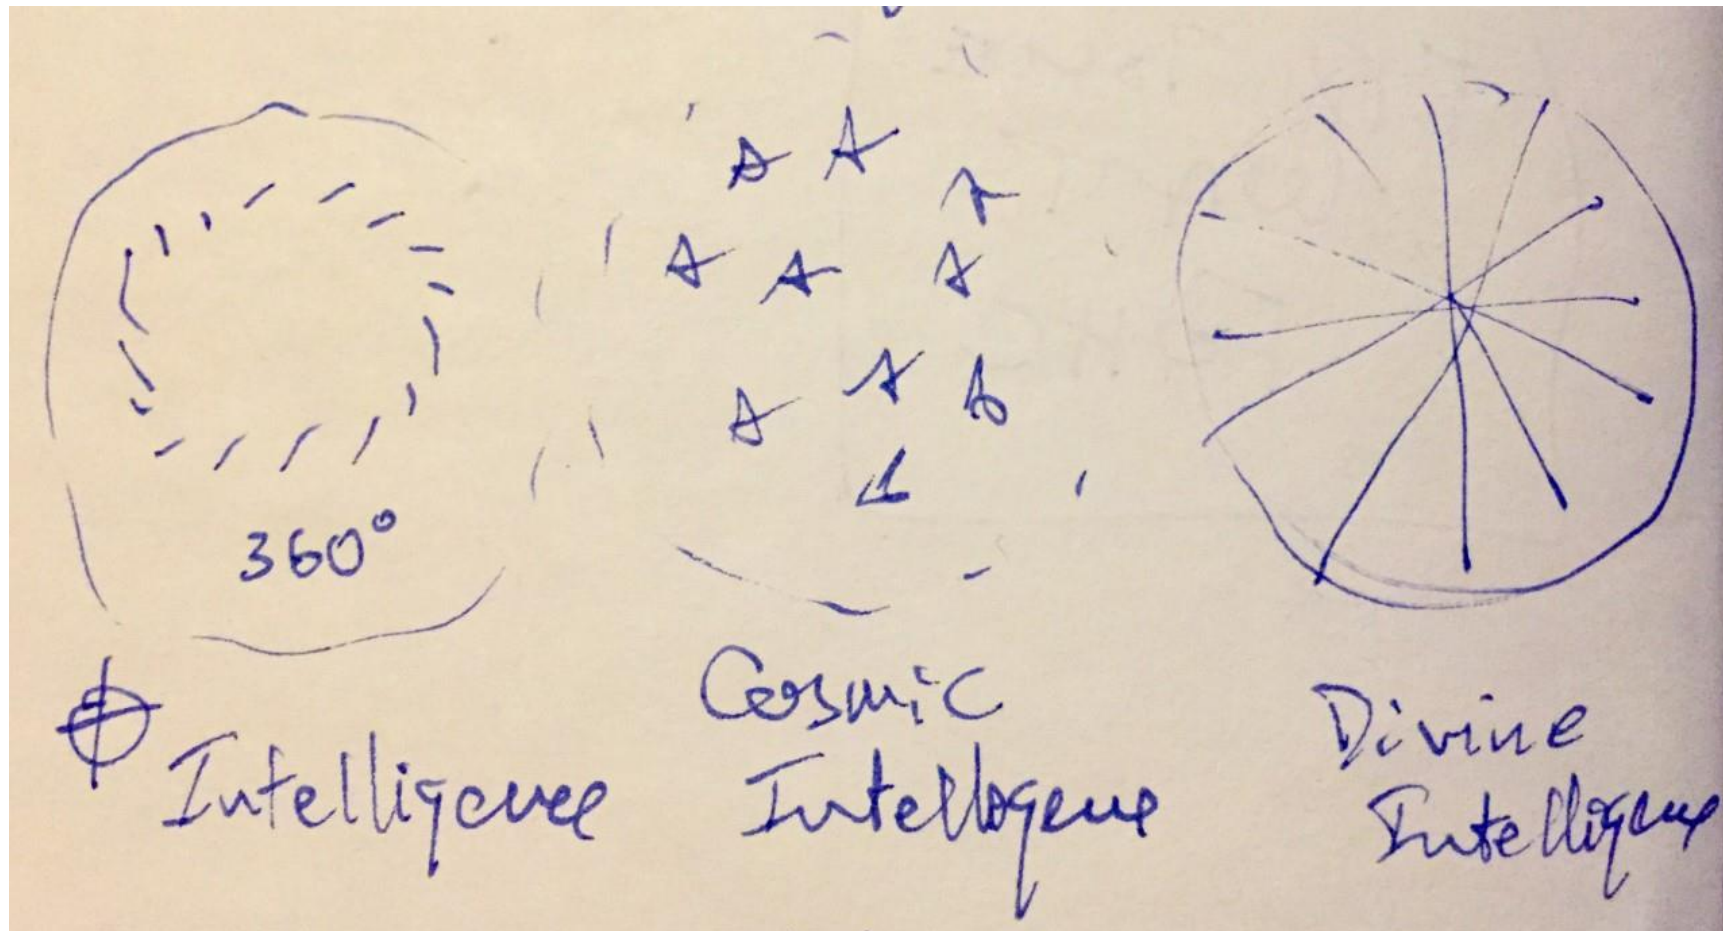 360°
Φ
Intelligence
Cosmic
Intelligence
Divine
Intelligence